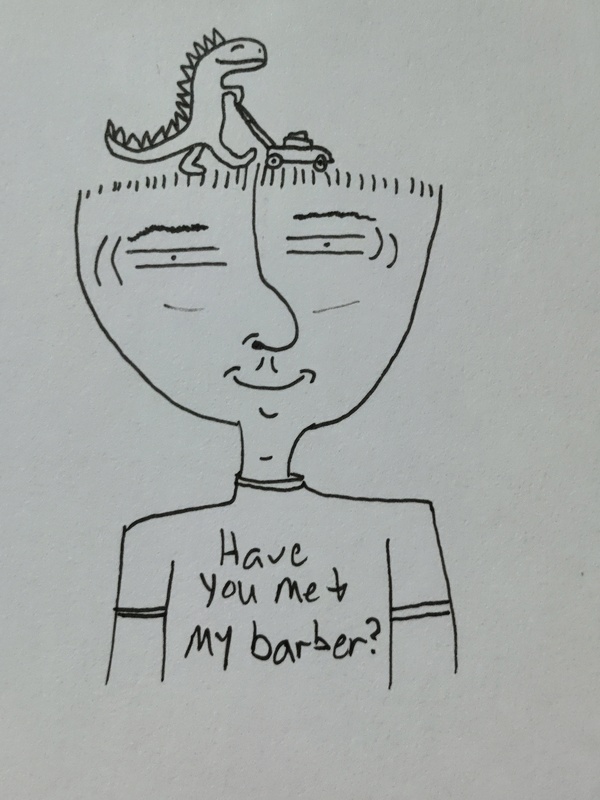 Have
you met
My barber?